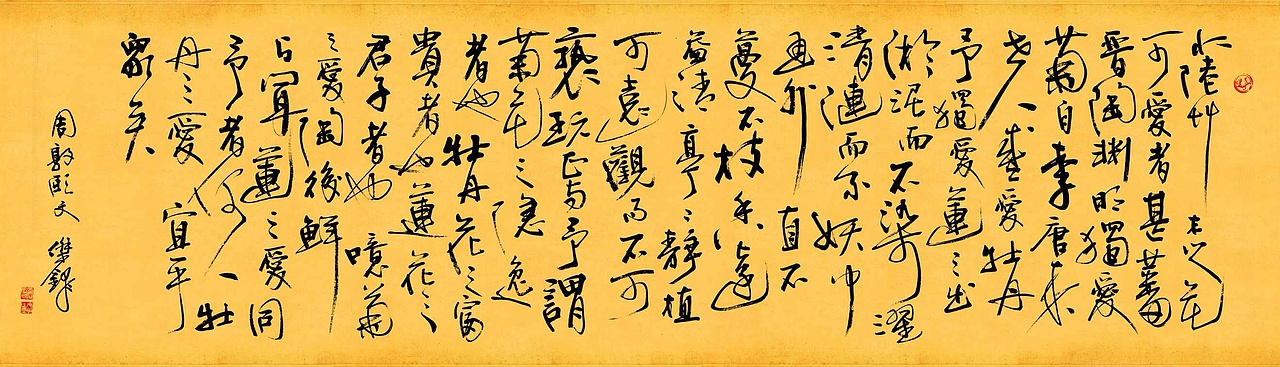 水陸艸木之花
可愛者甚蕃
晉陶淵明獨愛
菊自李唐来
世人盛愛牡丹
予獨愛蓮之出
淤泥而不染濯
清漣而不妖中
通外直不
蔓不枝香遠
益清亭〻静植
可遠觀而不可
褻玩焉予謂
菊花之隱逸
者也牡丹花之富
貴者也蓮花之
君子者也噫菊
之愛陶後鮮
有聞蓮之愛同
予者何人牡
丹之愛宜乎
眾矣
周敦頤文